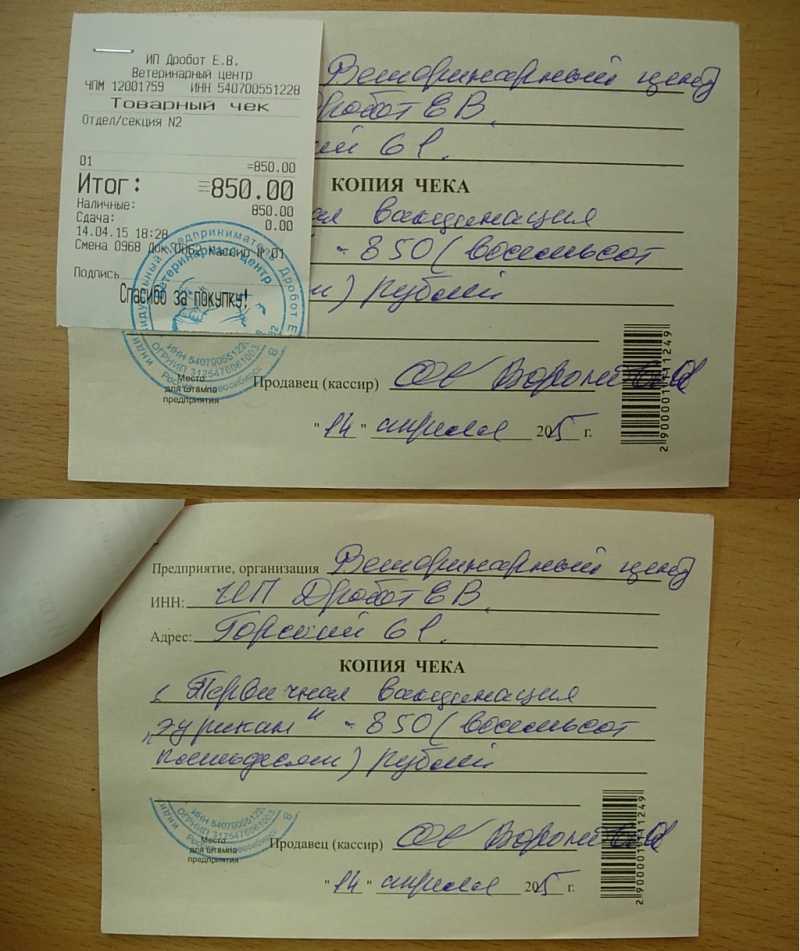 ИП Дробот Е.В.
Ветеринарный центр
ЧПМ 12001759 ИНН 540700551228
Товарный чек
Отдел/секция N2
01 =850.00
Итог: =850.00
Наличные: 850.00
Сдача: 0.00
14.04.15 18:28
Смена 0968 Док.0062 Кассир № 01
Подпись
Спасибо за покупку!
Ветеринарный центр
Дробот ЕВ.
ий 61.
КОПИЯ ЧЕКА
ая вакцинация
" - 850 (восемьсот
) рублей
Место
для штампа
предприятия
Продавец (кассир)
"14" апреля 2015 г.
2900001111249
Предприятие, организация Ветеринарный центр
ИНН: ИП Дробот ЕВ.
Адрес: Горский 61.
КОПИЯ ЧЕКА
Первичная вакцинация
"эурикан" - 850 (восемьсот
пятьдесят) рублей
Место
для штампа
предприятия
Продавец (кассир)
"14" апреля 2015 г.
2900001111249